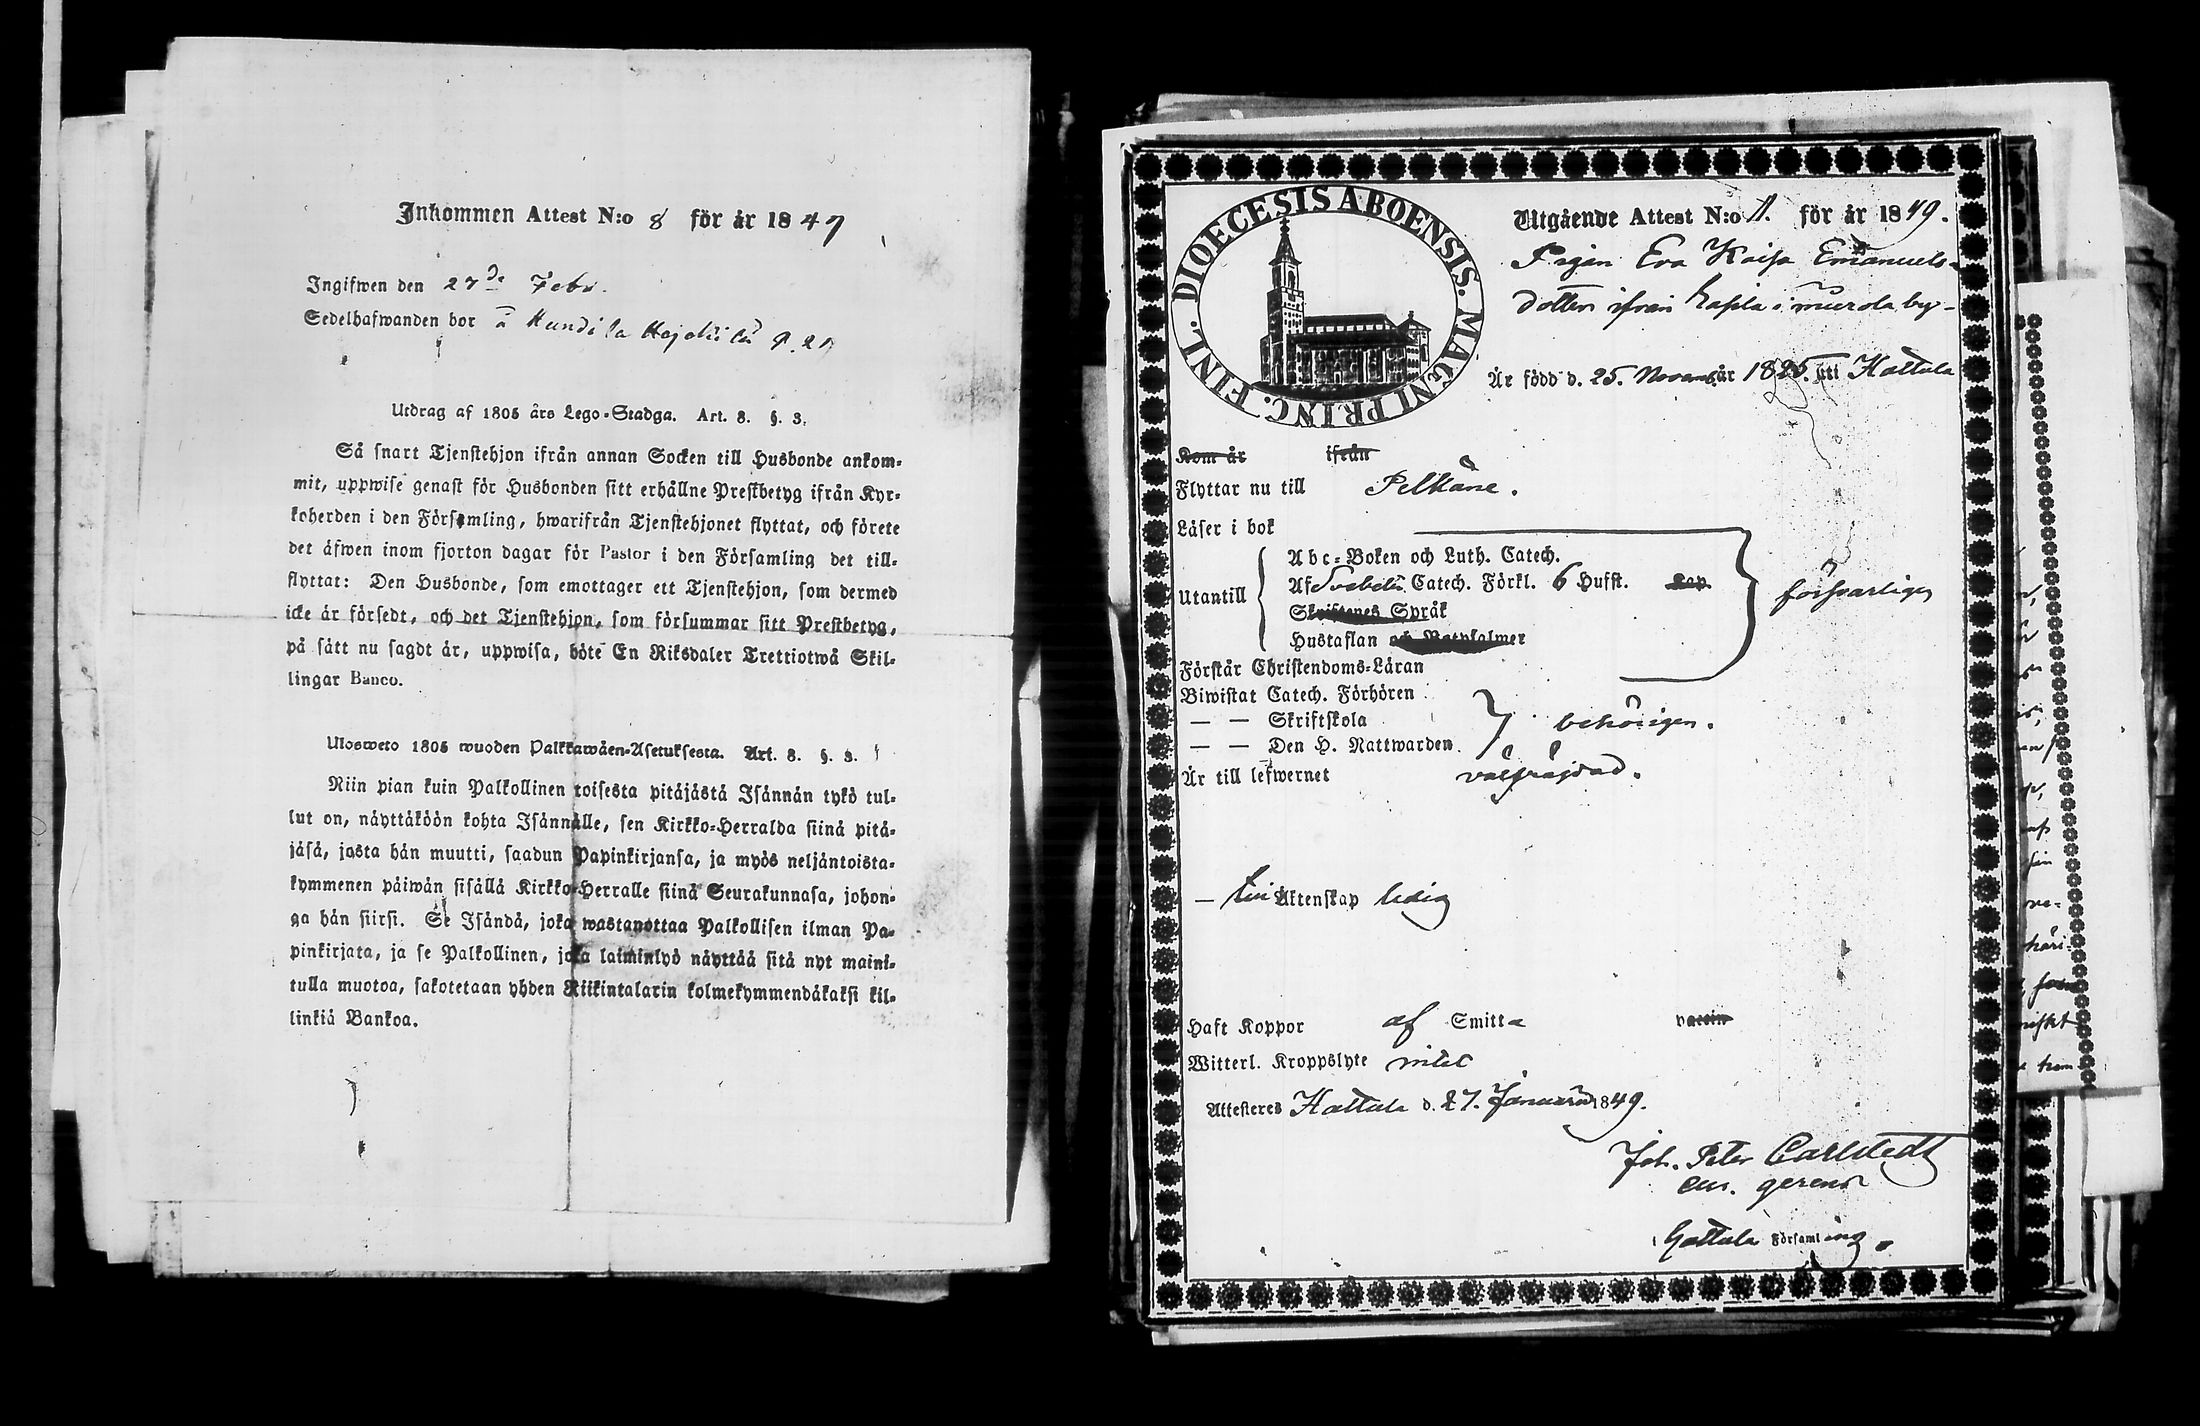 Inkommen Attest N:o 8 för år 1847
Ingifwen den 27de Febr.
Sedelhafwanden bor å
Utdrag af 1805 års Lego-Stadga. Art. 8. §. 3.
Så snart Tjenstehjon ifrån annan Socken till Husbonde ankom-
mit, uppwise genast för Husbonden sitt erhållne Prestbetyg ifrån Kyr-
koherden i den Församling, hwarifrån Tjenstehjonet flyttat, och förete
det äfwen inom fjorton dagar för Pastor i den Församling det till-
flyttat: Den Husbonde, som emottager ett Tjenstehjon, som dermed
icke är försedt, och det Tjenstehjon, som försummar sitt Prestbetyg,
på sätt nu sagdt är, uppwisa, böte En Riksdaler Trettiotwå Skil-
lingar Banco.
Ulosweto 1805 wuoden Palkkawäen-Asetuksesta. Art. 8. §. 3.
Niin pian kuin Palkollinen toisesta pitäjästä Isännän tykö tul-
lut on, näyttäköön kohta Isännälle, sen Kirkko-Herralda siinä pitä-
jäsä, josta hän muutti, saadun Papinkirjansa, ja myös neljäntoista-
kymmenen päiwän sisällä Kirkko-Herralle siinä Seurakunnasa, johon-
ga hän siirsi. Se Isändä, joka wastanottaa Palkollisen ilman Pa-
pinkirjata, ja se Palkollinen, joka laiminlyö näyttää sitä nyt maini-
tulla muotoa, sakotetaan yhden Riikintalarin kolmekymmendäkaksi kil-
linkiä Bankoa.
FINL. DIOECESIS ABOENSIS. MAGNI PRINC.
Utgående Attest N:o 11. för år 1849.
Pigan Eva Kaisa Emanuels-
dotter ifrån i murola by-
Är född d. 25. Novemb. år 1825. uti Hattula
Kom år ifrån
Flyttar nu till Pelkäne.
Läser i bok
Abc-Boken och Luth. Catech.
Utantill Af Svebelii Catech. Förkl. 6 Hufst. Cap.
Skriftenes Språk
Hustaflan och Botpsalmer
försvarligen
Förstår Christendoms-Läran
Biwistat Catech. Förhören
— — Skriftskola behörigen.
— — Den H. Nattwarden
Är till lefwernet välfräjdad.
— till Äktenskap ledig
Haft Koppor af Smitta vaccin
Witterl. Kroppslyte intet
Attesteres Hattula d. 27. Januarii 1849.
Joh. Peter Carlstedt
cur. gerens
i Hattula Församling.